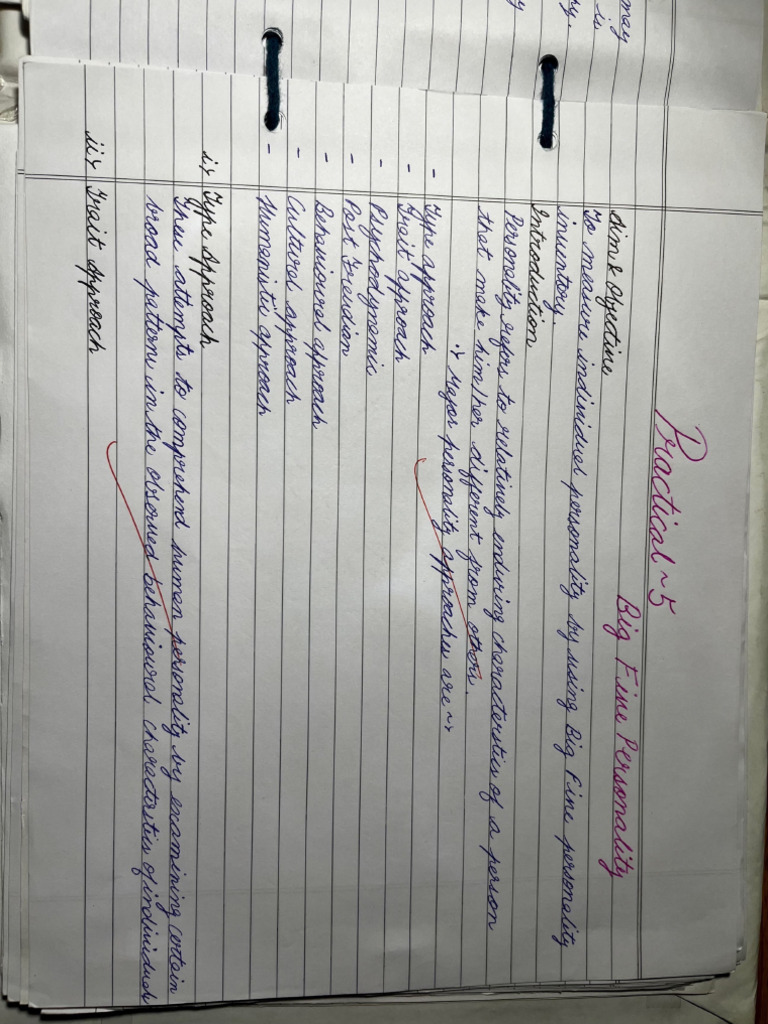 may
is
y.
y
Practical ~ 5
Big Five Personality
Aim & Objective
To measure individual personality by using Big Five personality
inventory.
Introduction
Personality refers to relatively enduring characteristics of a person
that make him/her different from others.
Major personality approaches are ~>
- Type approach
- Trait approach
- Psychodynamic
- Post Freudian
- Behavioural approach
- Cultural approach
- Humanistic approach
i> Type Approach
attempts to comprehend human personality by examining certain
broad pattern in the observed behavioural characteristics of individual
ii> Trait Approach